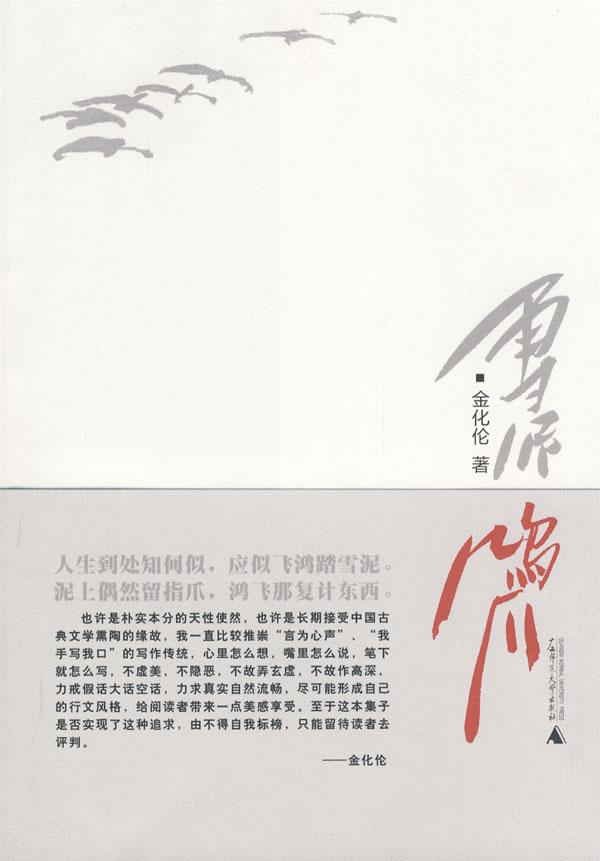 雪泥
■ 金化伦 著
鸿爪
人生到处知何似，应似飞鸿踏雪泥。
泥上偶然留指爪，鸿飞那复计东西。
也许是朴实本分的天性使然，也许是长期接受中国古
典文学熏陶的缘故，我一直比较推崇“言为心声”、“我
手写我口”的写作传统，心里怎么想，嘴里怎么说，笔下
就怎么写，不虚美，不隐恶，不故弄玄虚，不故作高深，
力戒假话大话空话，力求真实自然流畅，尽可能形成自己
的行文风格，给阅读者带来一点美感享受。至于这本集子
是否实现了这种追求，由不得自我标榜，只能留待读者去
评判。
——金化伦
广西师范大学出版社
GUANGXI NORMAL UNIVERSITY PRESS